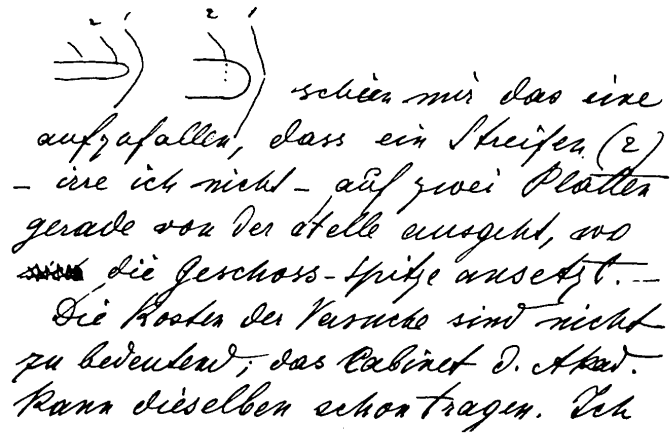 2 1 2 1
schien mir das eine
aufzufallen, dass ein Streifen (2)
– irre ich nicht –, auf zwei Platten
gerade von der Stelle ausgeht, wo
die Geschoss-spitze ansetzt. –
Die Kosten der Versuche sind nicht
zu bedeutend; das Cabinet d. Akad.
kann dieselben schon tragen. Ich